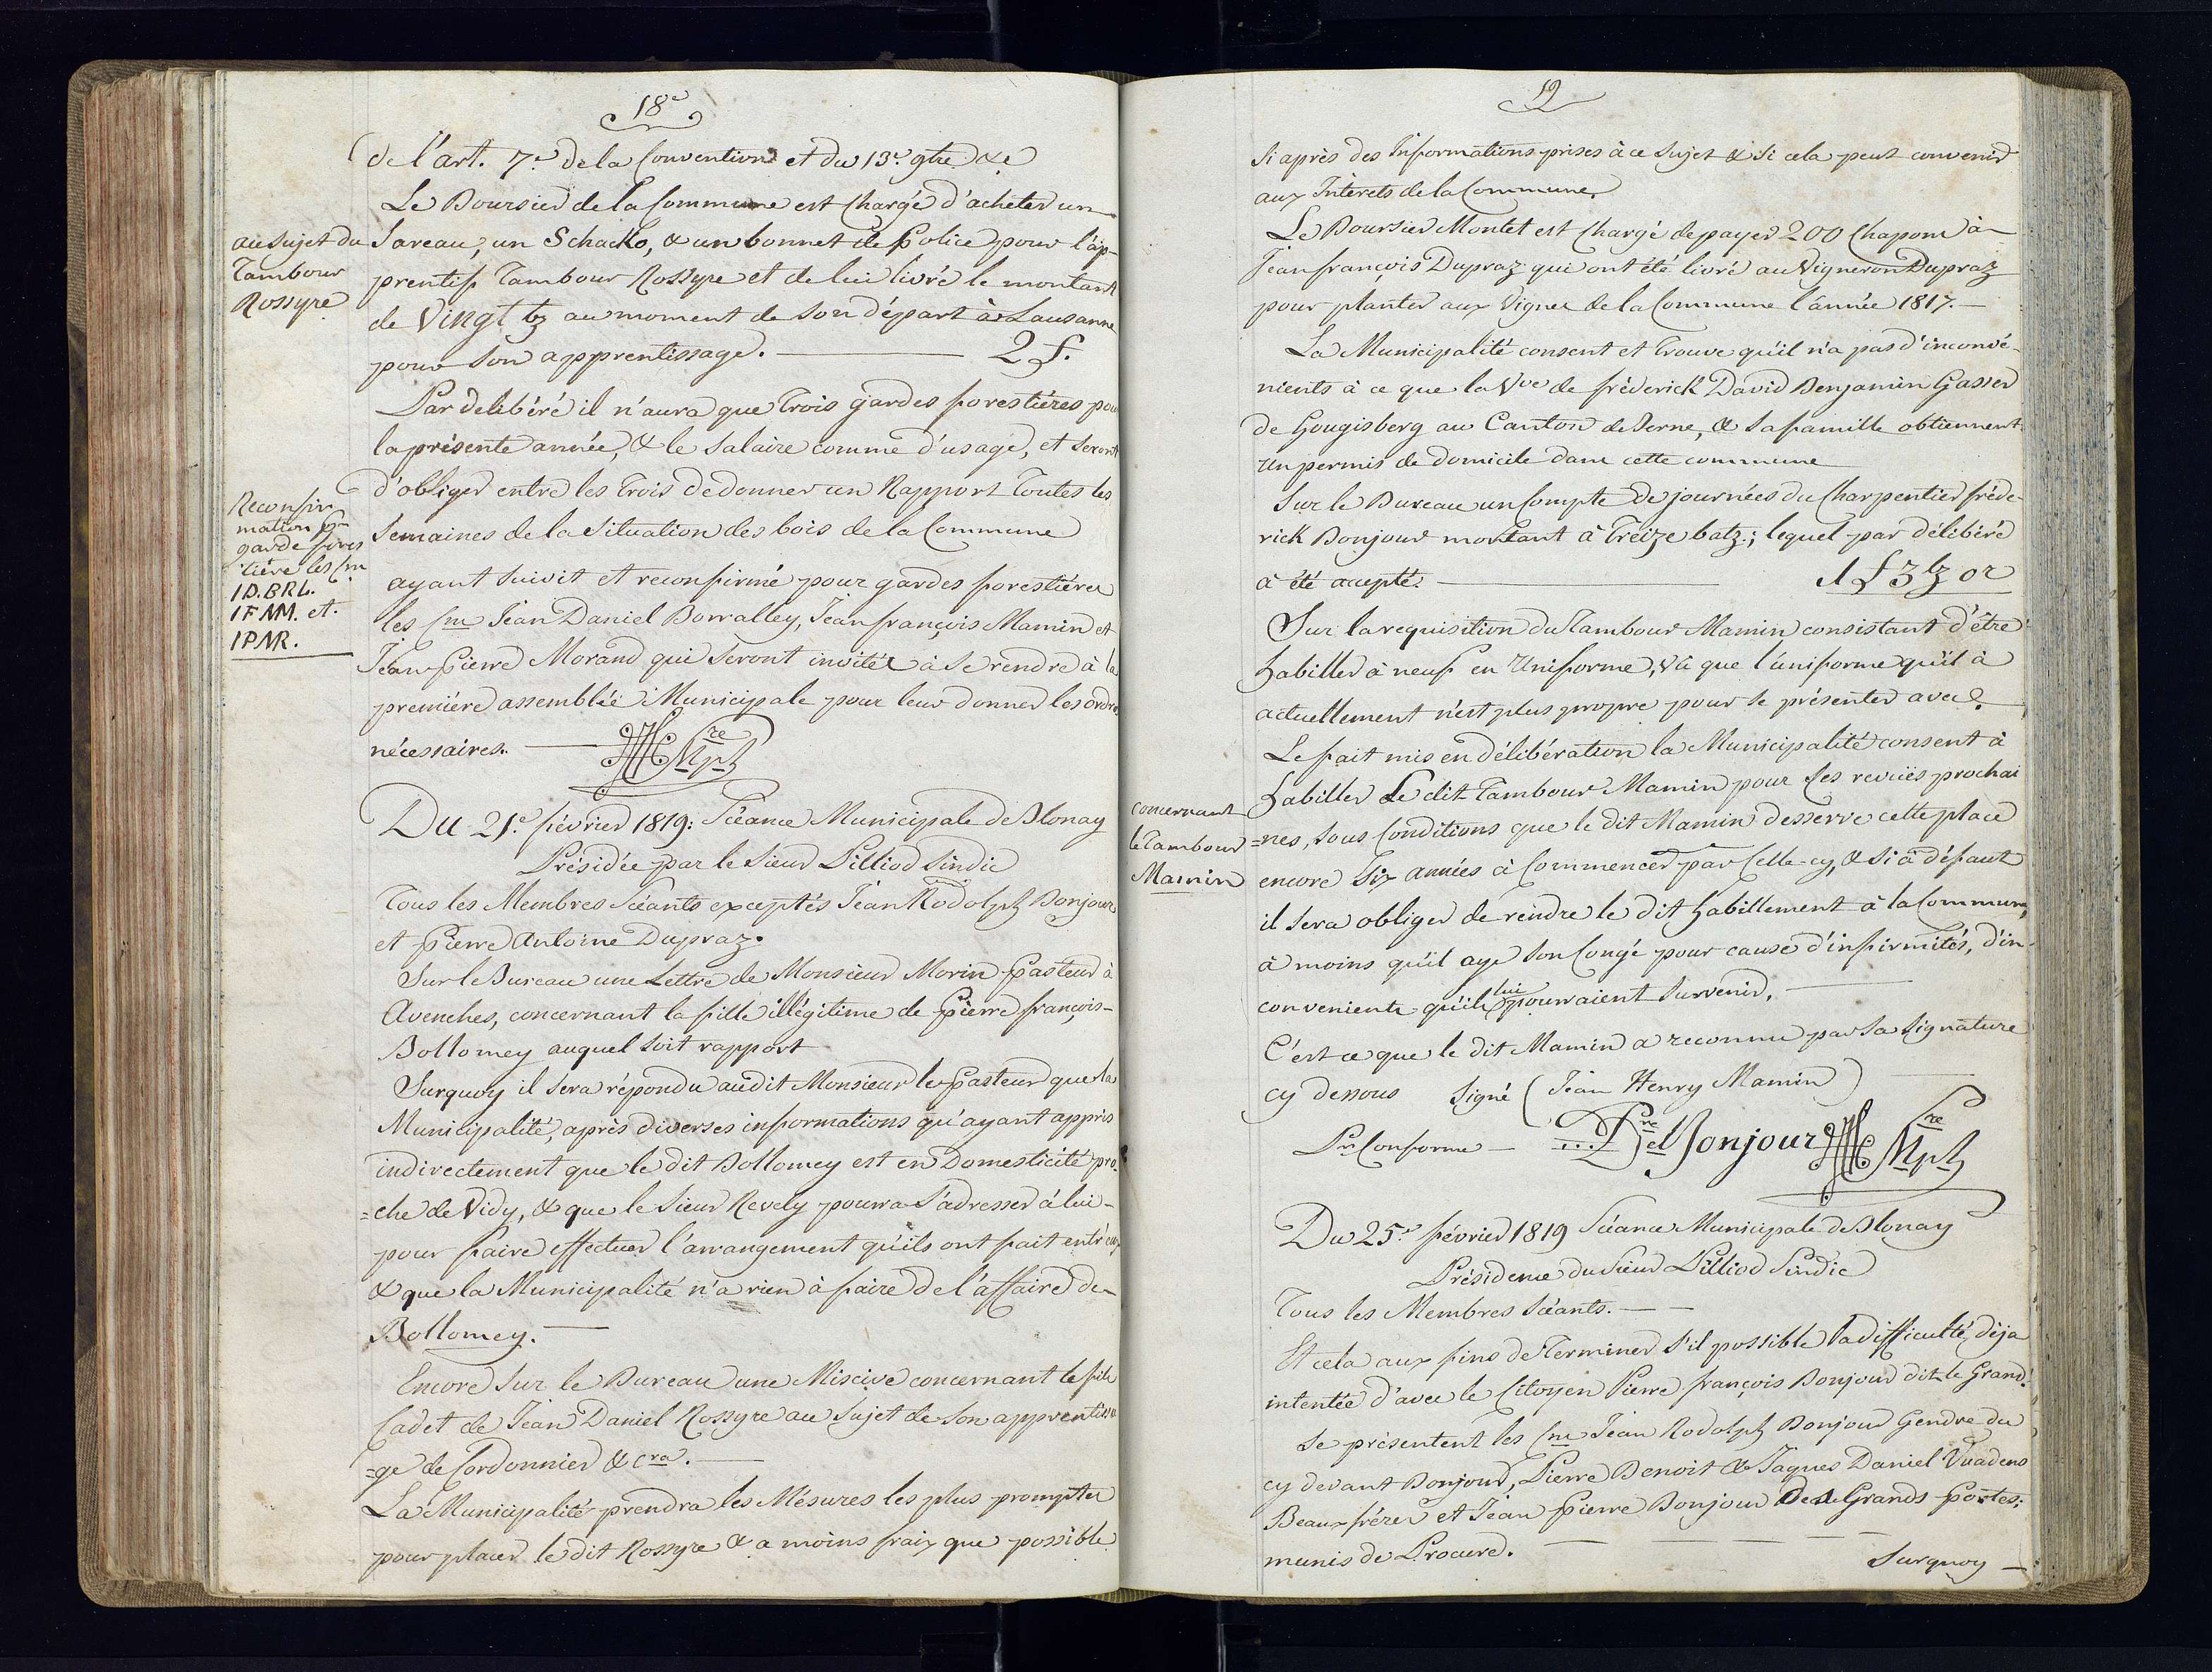 18e
de l'art. 7e. de la Convention et du 13e. 9bre &e
Le Boursier de la Commune est Chargé d'acheter un
au sujet du
Tambour
Rossyre
Sareau, un Schacko, & un bonnet de Police pour l'ap-
prentif Tambour Rossyre et de lui livré le montant
de Vingt bz au moment de son départ à Lausanne
pour son apprentissage. — 2 f.
Par delibéré il n'aura que trois gardes forestières pour
la présente année, & le salaire comme d'usage, et seront
d'obliger entre les trois de donner un Rapport toutes les
semaines de la situation des bois de la Commune
Reconfir
mation pr
garde fores
tière les Srs
ID.BRL.
IFMM. et.
IPMR.
ayant suivit et reconfirmé pour gardes forestières
les Srs Jean Daniel Borralley, Jean françois Mamin et
Jean Pierre Morand qui seront invités à se rendre à la
première assemblée Municipale pour leur donner les ordres
nécessaires. — Mph re
Du 21e. février 1819: Séance Municipale de Blonay
Présidée par le Sieur Pilliod Sindic
Tous les Membres Séants exceptés Jean Rodolph Bonjour
et Pierre Antoine Dupraz.
Sur le Bureau une Lettre de Monsieur Morin Pasteur à
Avenches, concernant la fille illégitime de Pierre françois-
Bollomey auquel soit rapport
Surquoy il sera répondu audit Monsieur le Pasteur que la
Municipalité, après diverses informations qu'ayant appris
indirectement que le dit Bollomey est en Domesticité pro-
=che de Vidy, & que le Sieur Revely pourra s'adresser à lui-
pour faire effectuer l'arrangement qu'ils ont fait entr'eux
& que la Municipalité n'a rien à faire de l'affaire de
Bollomey. —
Encore sur le Bureau une Miscive concernant le fils
Cadet de Jean Daniel Rossyre au sujet de son apprentissa
=ge de Cordonnier & cra. —
La Municipalité prendra les Mésures les plus promptes
pour placer le dit Rossyre & a moins fraix que possible
19
si après des Informations prises à ce sujet & si cela peut convenir
aux Intèrets de la Commune
Le Boursier Montet est Chargé de payer 200 Chapons à
Jean françois Dupraz qui ont été livré au Vigneron Dupraz
pour planter aux Vignes de la Commune l'année 1817. —
La Municipalité consent et trouve qu'il n'a pas d'inconvé-
nients à ce que la Vve de fréderick David Benjamin Gasser
de Gougisberg au Canton de Berne, & sa famille obtiennent
un permis de domicile dans cette commune
Sur le Bureau un Compte de journées du Charpentier fréde-
rick Bonjour montant à Treize batz; lequel par délibéré
à été accepté. — 1 f 3 bz 0 r
Sur la requisition du Tambour Mamin consistant d'être
habiller à neuf en Uniforme, vû que l'uniforme qu'il à
actuellement n'est plus propre pour se présenter avec.
Le fait mis en délibération la Municipalité consent à
habiller Le dit Tambour Mamin pour les revües prochai
concernant
le Tambour
Mamin
=nes, sous Conditions que le dit Mamin desserve cette place
encore Six années à Commencer par Celle-cy, & si à défaut
il sera obliger de rendre le dit habillement à la Commune,
à moins qu'il aye son Congé pour cause d'infirmités, d'in-
convenients qu'ils lui pourraient survenir. —
C'est ce que le dit Mamin a reconnu par sa signature
cy dessous Signé (Jean Henry Mamin)
Pr Conforme — Bonjour Mph re
Du 25e. février 1819 Séance Municipale de Blonay
Présidence du Sieur Pilliod Sindic
Tous les Membres Séants. —
Et cela aux fins de Terminer s'il possible la difficulté déja
intentée d'avec le Citoyen Pierre françois Bonjour dit le Grand.
Se présentent les Srs Jean Rodolph Bonjour Gendre du
cy devant Bonjour, Pierre Benoit & Jaques Daniel Vuadens
Beaux frères et Jean Pierre Bonjour Des Grands Portes.
munis de Procure. —
Surquoy —